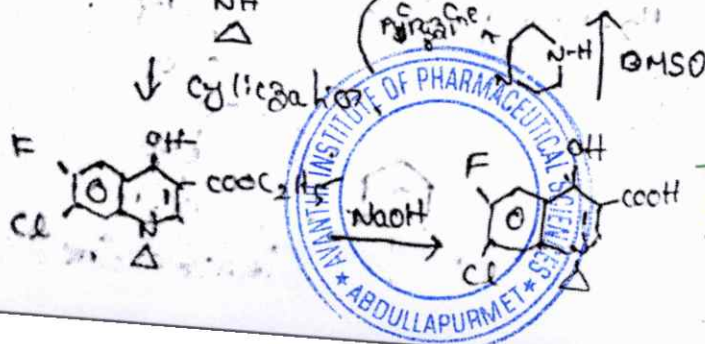 NH
N-H
DMSO
F
OH
COOC2H5
Cl
N
NaOH
F
OH
COOH
Cl
AVANTHI INSTITUTE OF PHARMACEUTICAL SCIENCES
* ABDULLAPURMET *